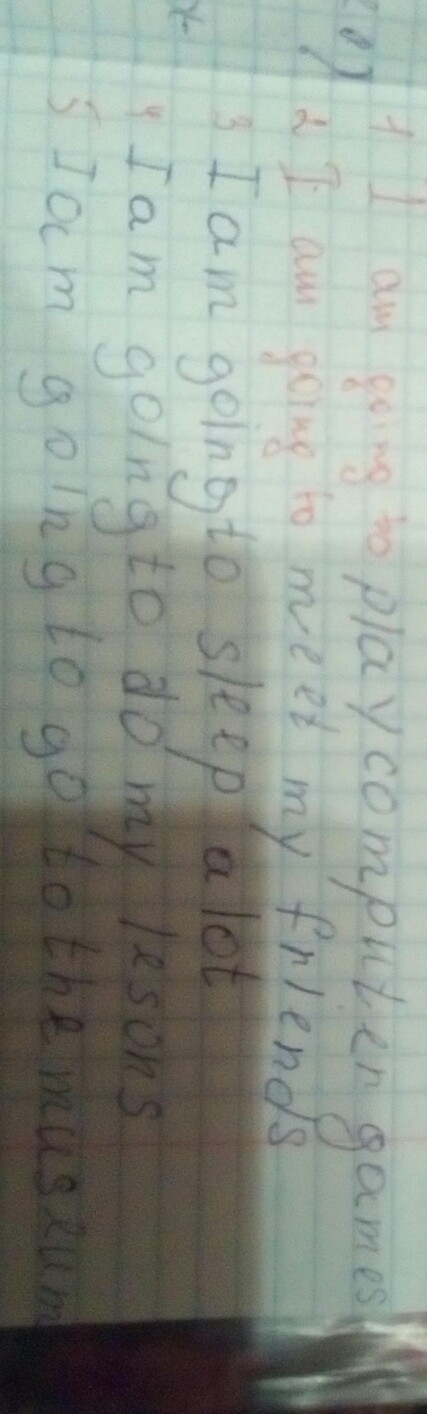 1 I am going to play computer games
2 I am going to meet my friends
3 I am going to sleep a lot
4 I am going to do my lesons
5 I am going to go to the museum